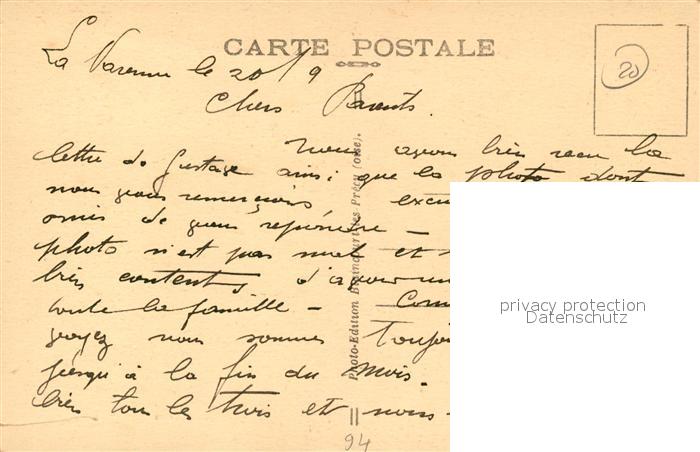 CARTE POSTALE
La Varenne le 20/9
20
Chers Parents.
nous avons bien reçu la
lettre de Gustave ainsi que la photo dont
nous vous remercions excu
omis de vous répondre –
photo n'est pas mal et
bien contents d'avoir
toute la famille – Com
voyez nous sommes toujo
jusqu'à la fin du mois.
bien tous les trois et nous
Photo-Edition Précy (Oise).
94
privacy protection
Datenschutz